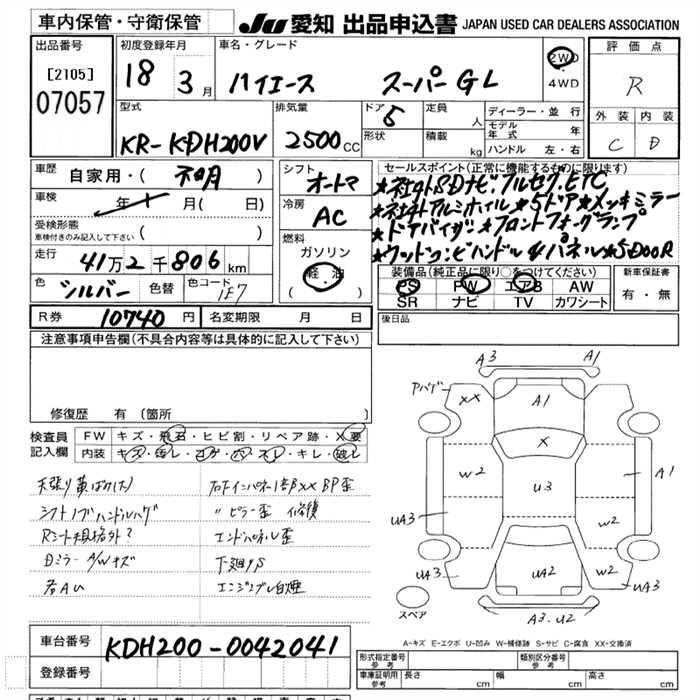 車内保管・守衛保管
JU 愛知 出品申込書 JAPAN USED CAR DEALERS ASSOCIATION
出品番号
[2105]
07057
初度登録年月
18 3月
車名・グレード
ハイエース スーパーGL
2WD
・
4WD
評価点
R
外装 内装
C D
型式
KR-KDH200V
排気量
2500cc
ドア 5
形状
定員
人
積載
kg
ディーラー・並行
モデル年式 年
ハンドル 左・右
車歴
自家用・(不明)
車検
年 月( 日)
受検形態
車検付きのみ記入して下さい( )
走行
41万2千806km
色
シルバー
色替
色コード
1E7
シフト
オートマ
冷房
AC
燃料
ガソリン
(軽油)
セールスポイント(正常に機能するものに限ります)
★社外SDナビ フルセグ、ETC
★社外アルミホイル★5ドア★メッキミラー
★ドアバイザー★フロントフォグランプ
★ウッドコンビハンドル 4パネル★5DOOR
装備品(純正品に限り○をつけてください)
PS PW エアB AW
SR ナビ TV カワシート
新車保証書
有・無
R券 10740円
名変期限 月 日
後日品
注意事項申告欄(不具合内容等は具体的に記入して下さい)
修復歴 有(箇所 )
検査員記入欄
FW キズ・飛石・ヒビ割・リペア跡・X要
内装 キズ・汚レ・コゲ・穴・スレ・キレ・破レ
シフトノブハンドルハゲ
Rシート規格外?
Dミラー A/Wキズ
各AU
〃 ピラー歪 修復
エンドパネル歪
下廻りS
エンジンブレ白煙
A3 A1
XX A1
X
W2 U3 A1
UA3 W2
UA3 UA2 W2 UA3
A3.U2
スペア
A-キズ E-エクボ U-凹み W-補修跡 S-サビ C-腐食 XX-交換済
車台番号
KDH200-0042041
登録番号
形式指定番号 参考
類別区分番号 参考
車庫証明用 参考
長さ cm
幅 cm
高さ cm